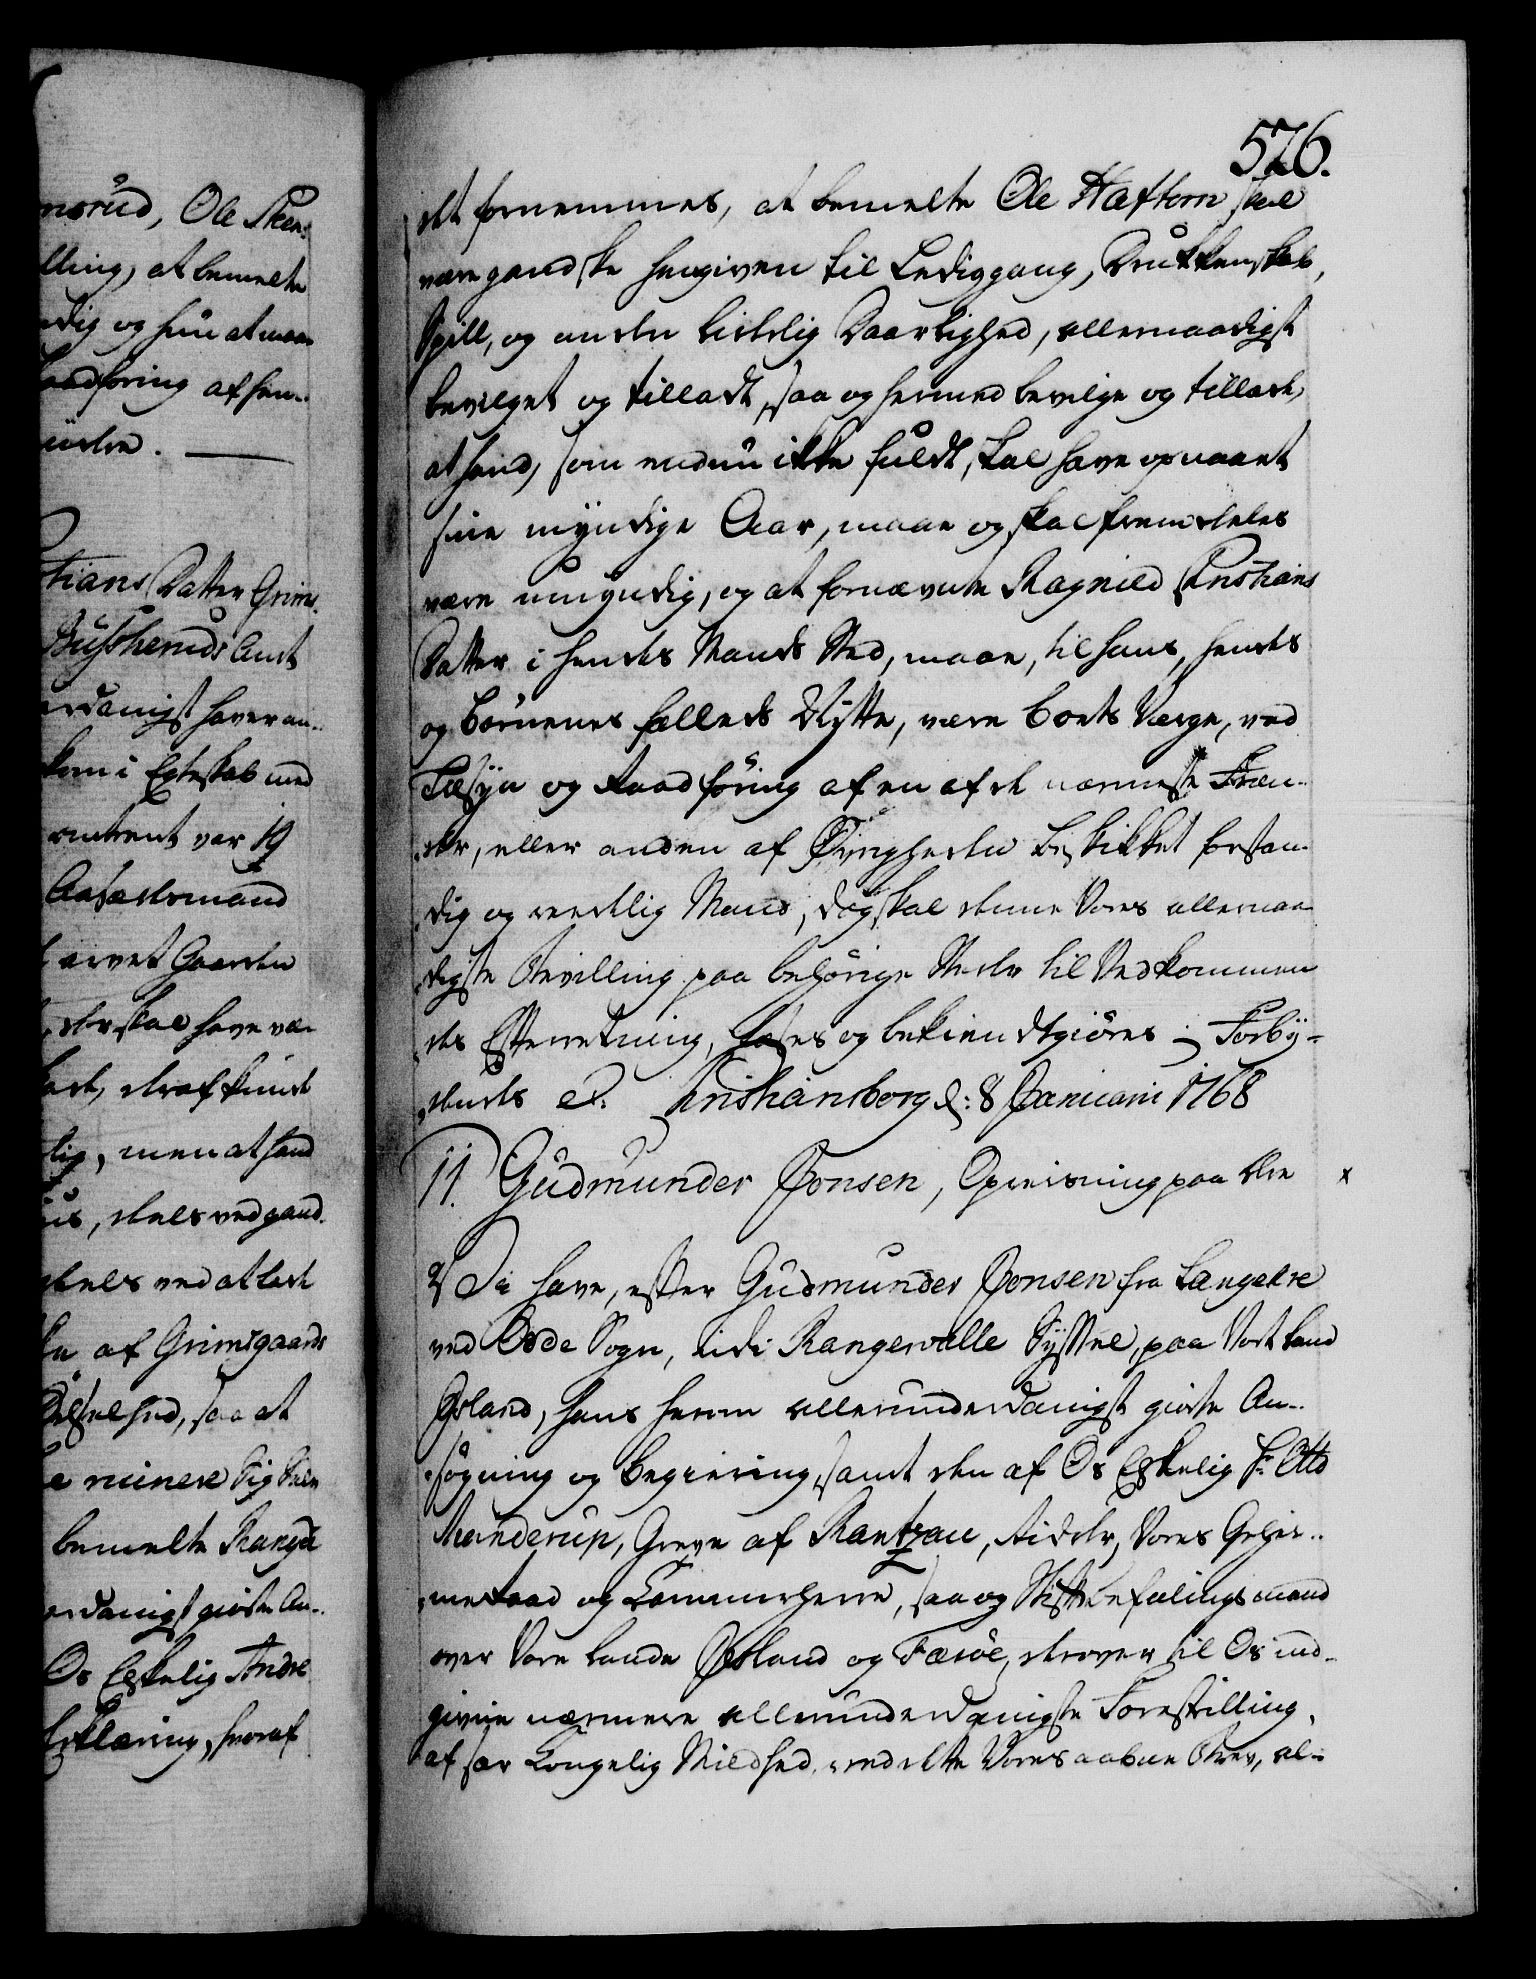 nsrud, Ole Sten-
lling, at bemelte
dig og hun at maa
aadføring af hen..
tians Datter Grims-
Buskeruds Amt
erdanigst haver an-
kom i Egteskab med
omtrent var 19
Aasædesmand
arvet Gaarden
der skal have væ-
lig, men at hand
deels ved gand-
deels ved at lade
af Grimsgaards
hed, saa at
e ruinere Sig Selv
bemelte Rangdi
erdanigst giorte An-
Os Elskelig Andre
Erklæring, hvoraf
576.
det fornemmes, at bemelte Ole Haftorn skal
være gandske hengiven til Lediggang, Drukkenskab,
Spill, og anden liderlig Daarlighed, allernaadigst
bevilget og tilladt, saa og hermed bevilge og tillade,
at hand, som endnu ikke fuldt skal have opnaaet
sine myndige Aar, maae og skal fremdeles
være umyndig, og at fornævnte Ragnild Christians
Datter i hendes Mands Sted, maae, til hans, hendes
og Børnenes fælleds Nytte, være Boets Værge, med
Tilsyn og Raadføring af en af de nærmeste Fræn-
der, eller anden af Øvrigheden beskikket forstan-
dig og reedelig Mand, dog skal denne Vores allernaa-
digste Bevilling paa behørige Steder til Vedkommen-
des Efterretning, læses og bekiendtgiøres; Forby-
dendes &. Christiansborg d: 8 Januarii 1768
11. Gudmunder Jonsen, Opreisning paa Ære x
Vi have, efter Gudmunder Jonsen fra Langekre
ved Odde Sogn, udi Rangervalle Syssel, paa Vort Land
Island, hans herom allerunderdanigst giorte An-
søgning og Begiering, samt den af Os Elskelig Hr. Otto
Manderup, Greve af Rantzau, Ridder, Vores Gehei-
meraad og Cammerherre, saa og Stiftsbefalingsmand
over Vore Lande Island og Færøe, derover til Os ind-
givne nærmere allerunderdanigste Forestilling,
af sær Kongelig Mildhed, ved dette Vores aabne Brev, al-